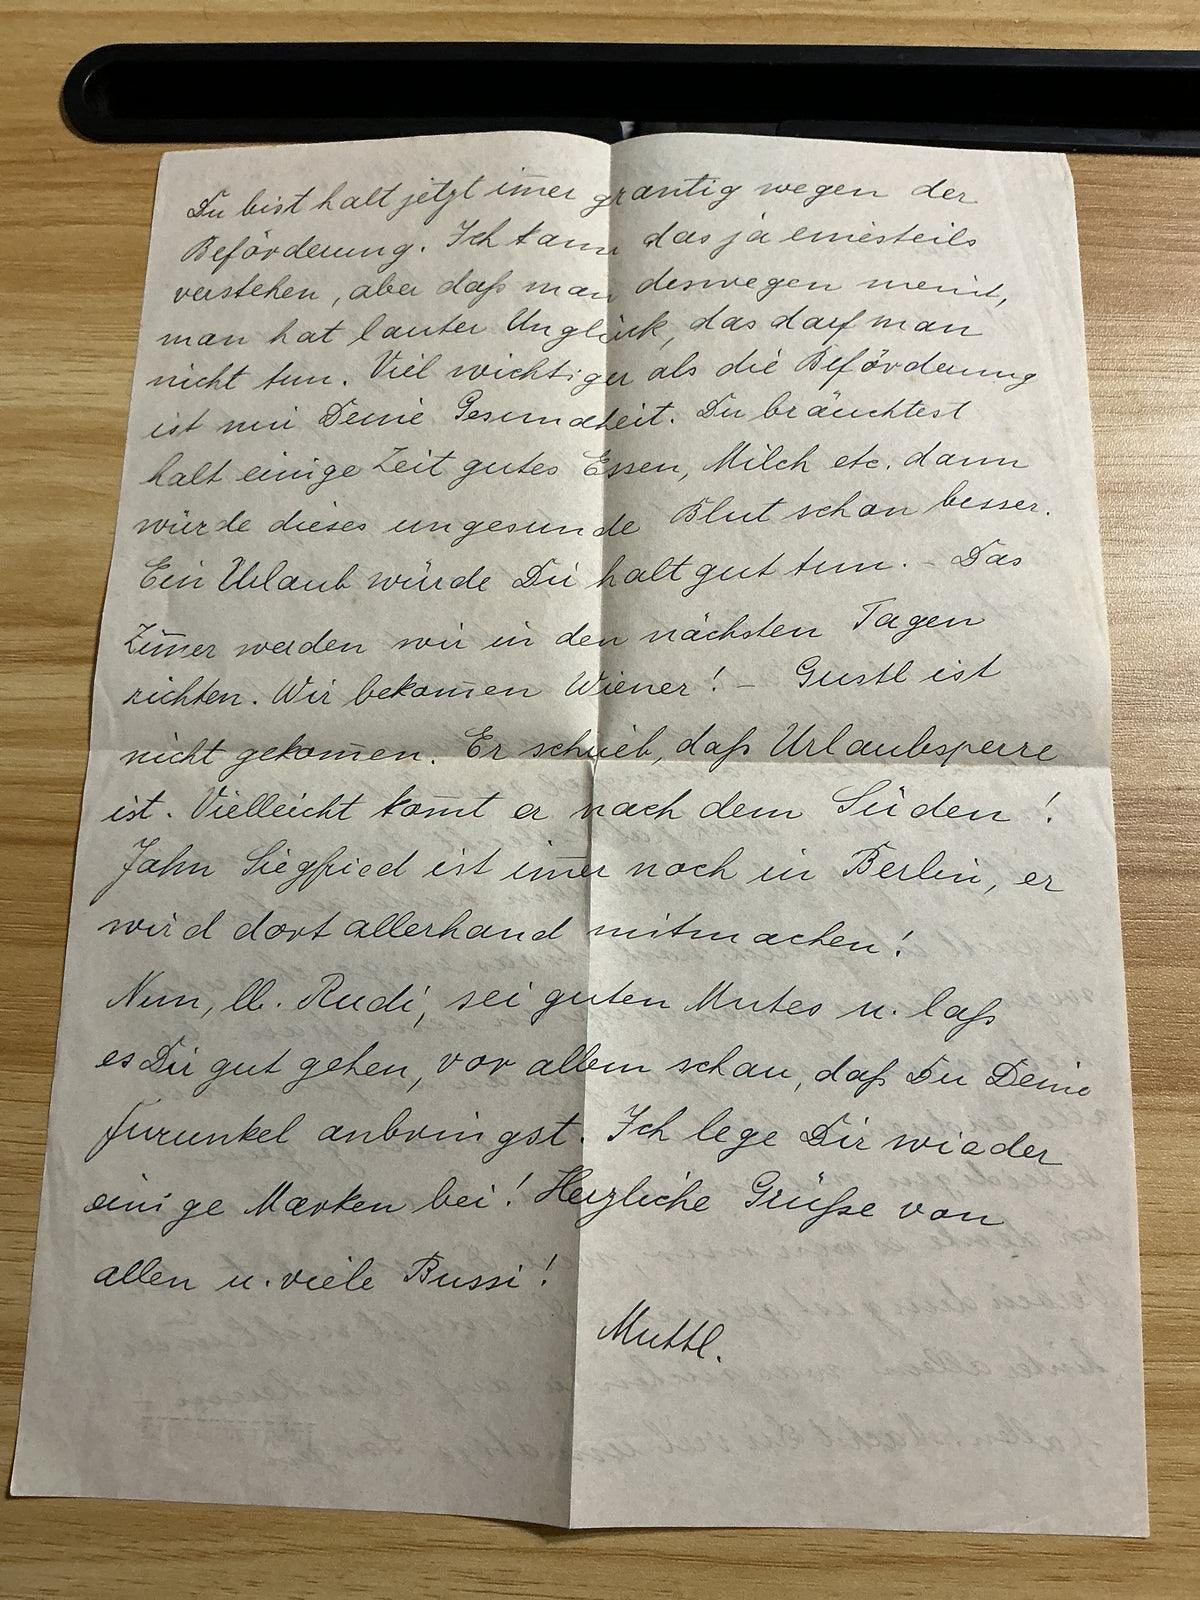 Du bist halt jetzt im̅er grantig wegen der
Beförderung. Ich kann das ja einesteils
verstehen, aber daß man deswegen meint,
man hat lauter Unglück, das darf man
nicht tun. Viel wichtiger als die Beförderung
ist mir Deine Gesundheit. Du bräuchtest
halt einige Zeit gutes Essen, Milch etc. dann
würde dieses ungesunde Blut schon besser.
Ein Urlaub würde Dir halt gut tun. – Das
Zim̅er werden wir in den nächsten Tagen
richten. Wir bekom̅en Wiener! – Gustl ist
nicht gekom̅en. Er schrieb, daß Urlaubsperre
ist. Vielleicht kom̅t er nach dem Süden!
Jahn Siegfried ist im̅er noch in Berlin, er
wird dort allerhand mitmachen!
Nun, lb. Rudi, sei guten Mutes u. laß
es Dir gut gehen, vor allem schau, daß Du Deine
Furunkel anbringst. Ich lege Dir wieder
einige Marken bei! Herzliche Grüße von
allen u. viele Bussi!
Muttl.